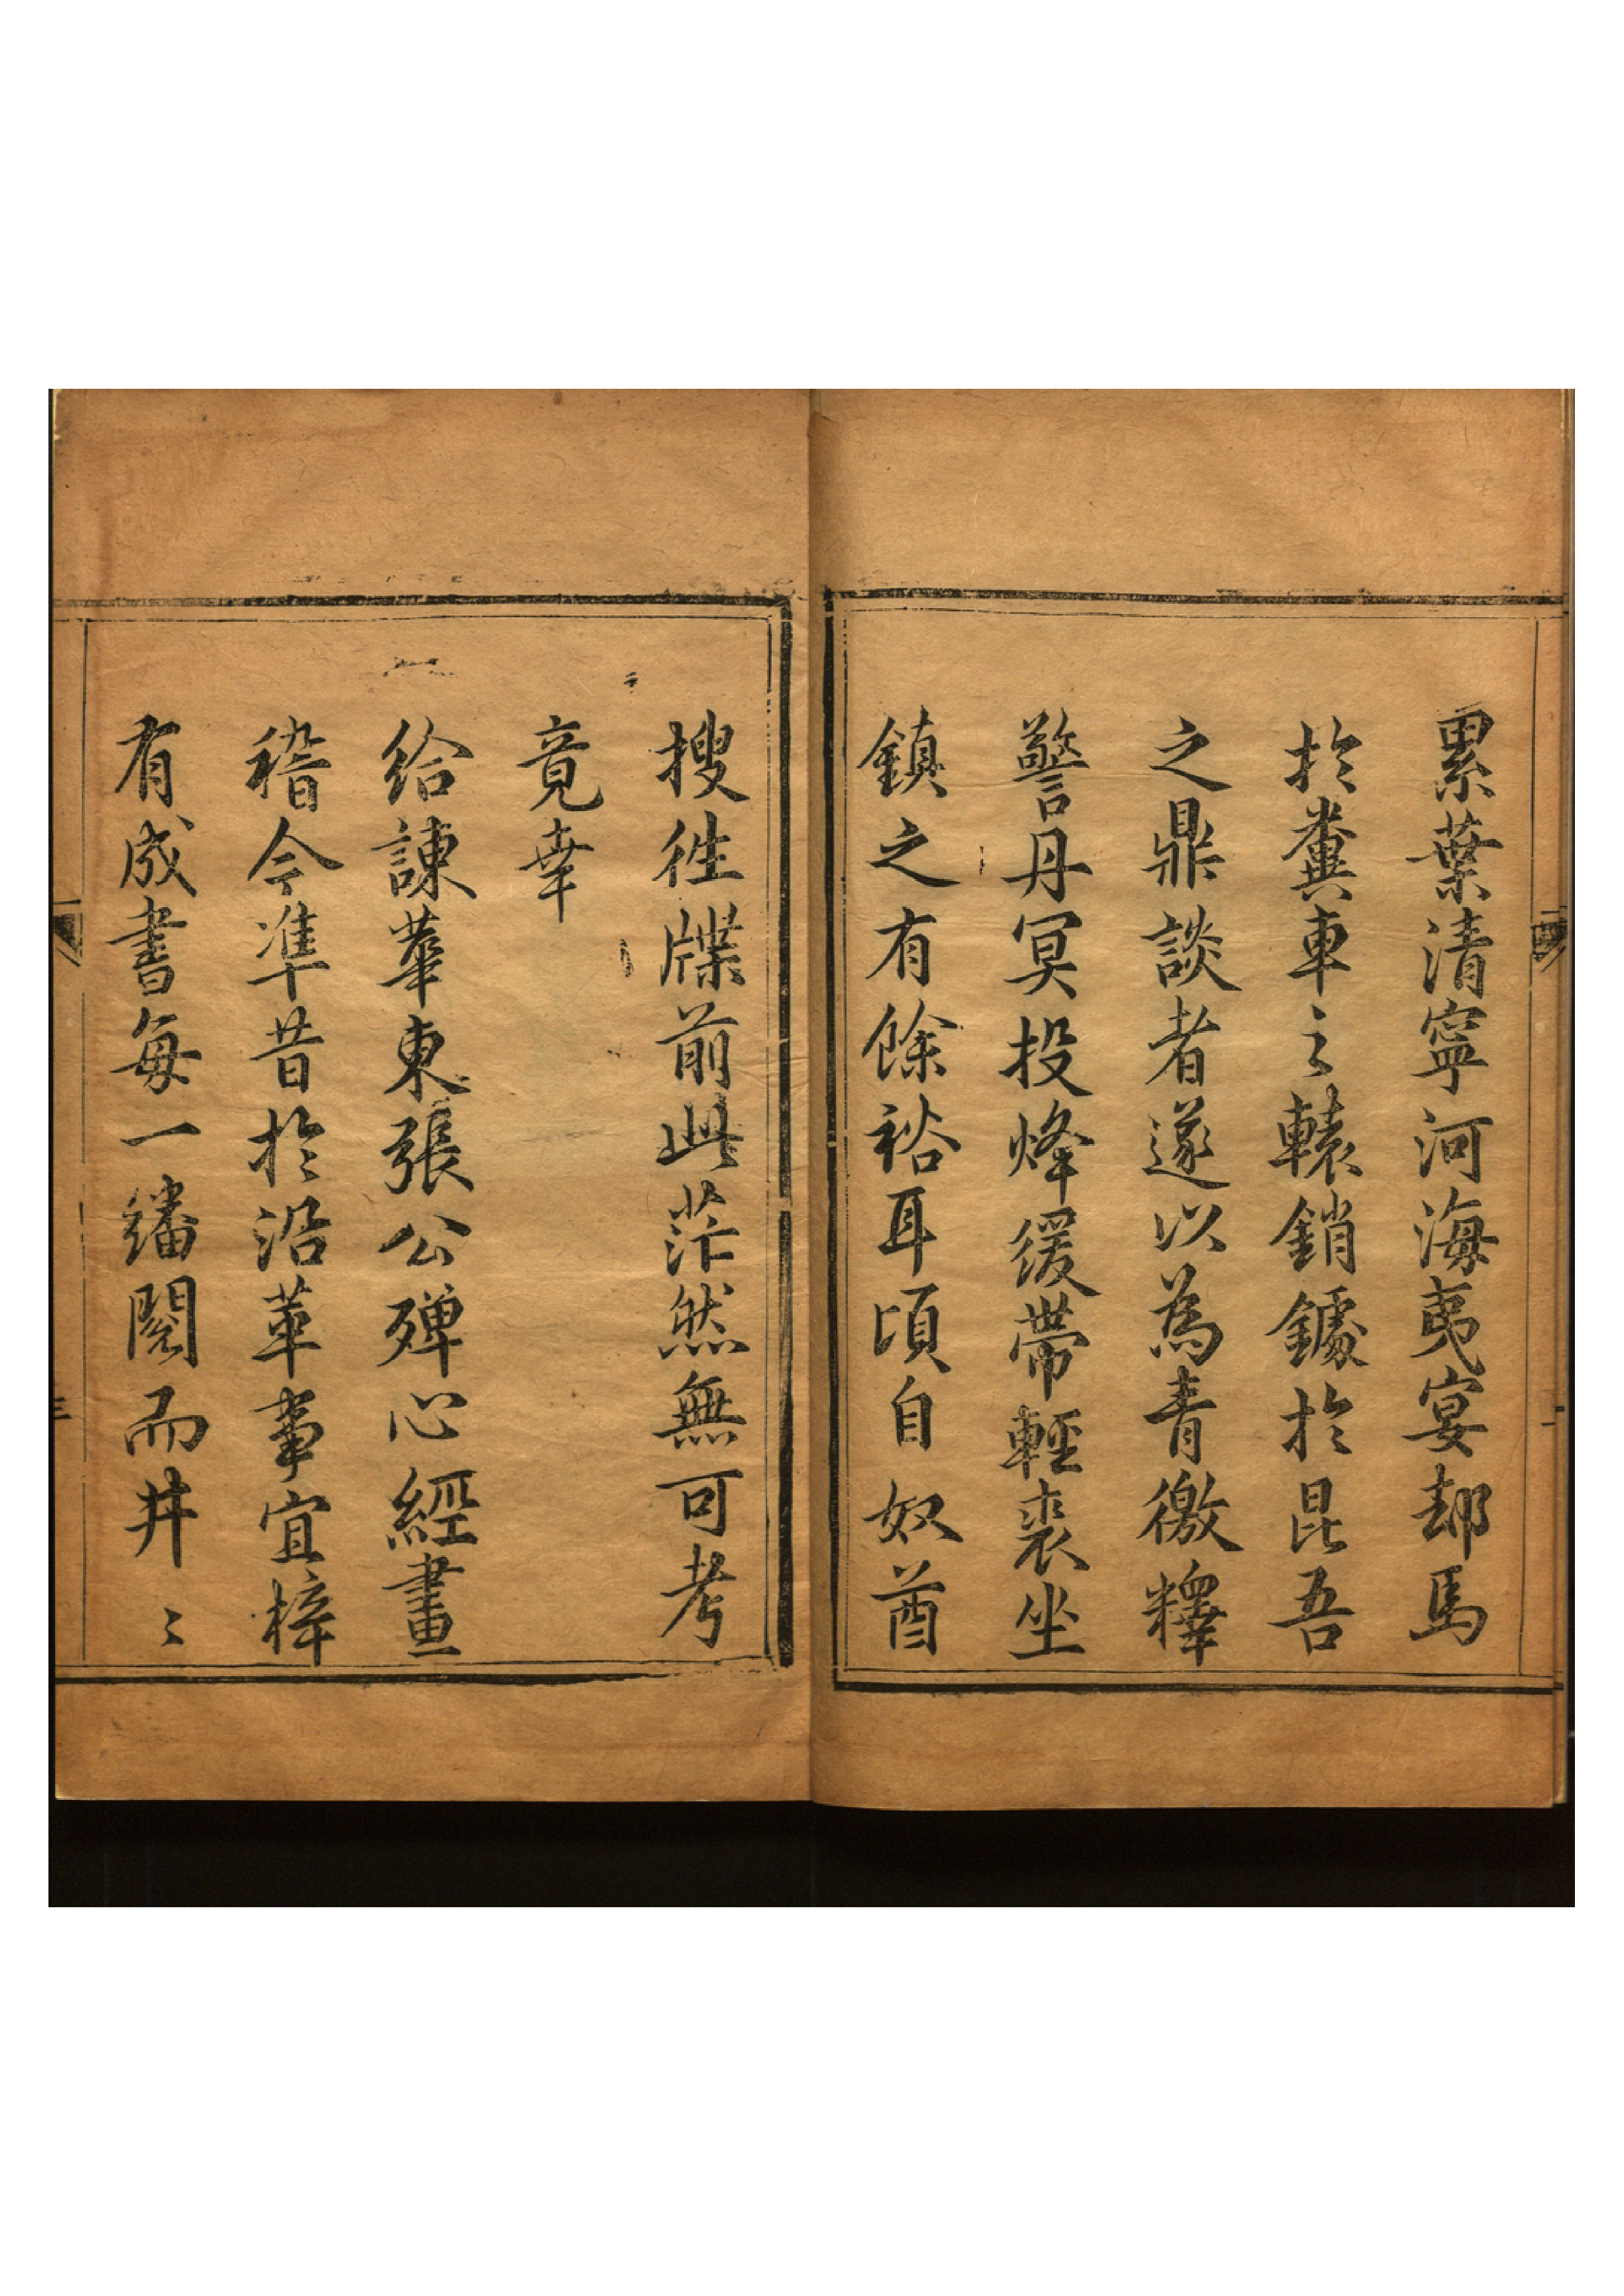 累葉清寧河海夷宴却馬
扵糞車之轅銷鐻扵昆吾
之鼎談者遂以為青徼釋
警丹冥投烽緩帶輕裘坐
鎮之有餘裕耳頃自奴酋
搜徃牒前此茫然無可考
竟幸
給諫華東張公殫心經畫
稽今準昔扵沿革事宜梓
有成書每一繙閱而井〻
三